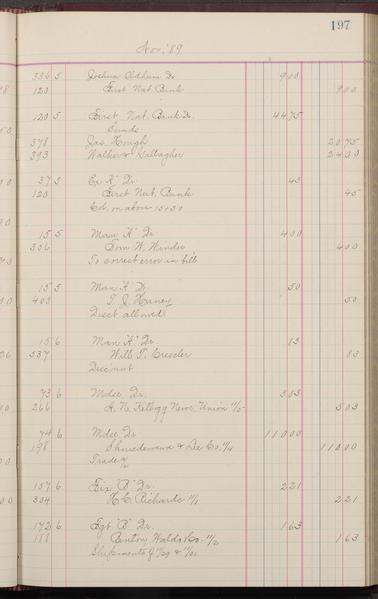 197
Nov. '89
336 5 Joshua Oldham Dr 900
120 First Nat Bank 900
120 5 First Nat. Bank Dr. 4475
Sunds
378 Jas. Hough 2075
393 Walker & Gallagher 2400
37 5 Ex % Dr 45
120 First Nat. Bank 45
Ed. on above 15+30
15 5 Man % Dr 400
306 Tom W. Winder 400
To correct error in bill
15 5 Man % Dr 50
403 T. J. Haney 50
Disct allowed
15 6 Man % Dr 83
537 Will T. Cressler 83
Discount
73 6 Mdse Dr. 503
266 A. N. Kellogg News. Union 11/5 503
74 6 Mdse Dr 11000
198 & Lee Co. 11/4 11000
Trade
157 6 Dr. 221
334 H. C. Richards 11/1 221
172 6 Dr. 163
188 Benton Waldo & Co. 11/2 163
Shipments of